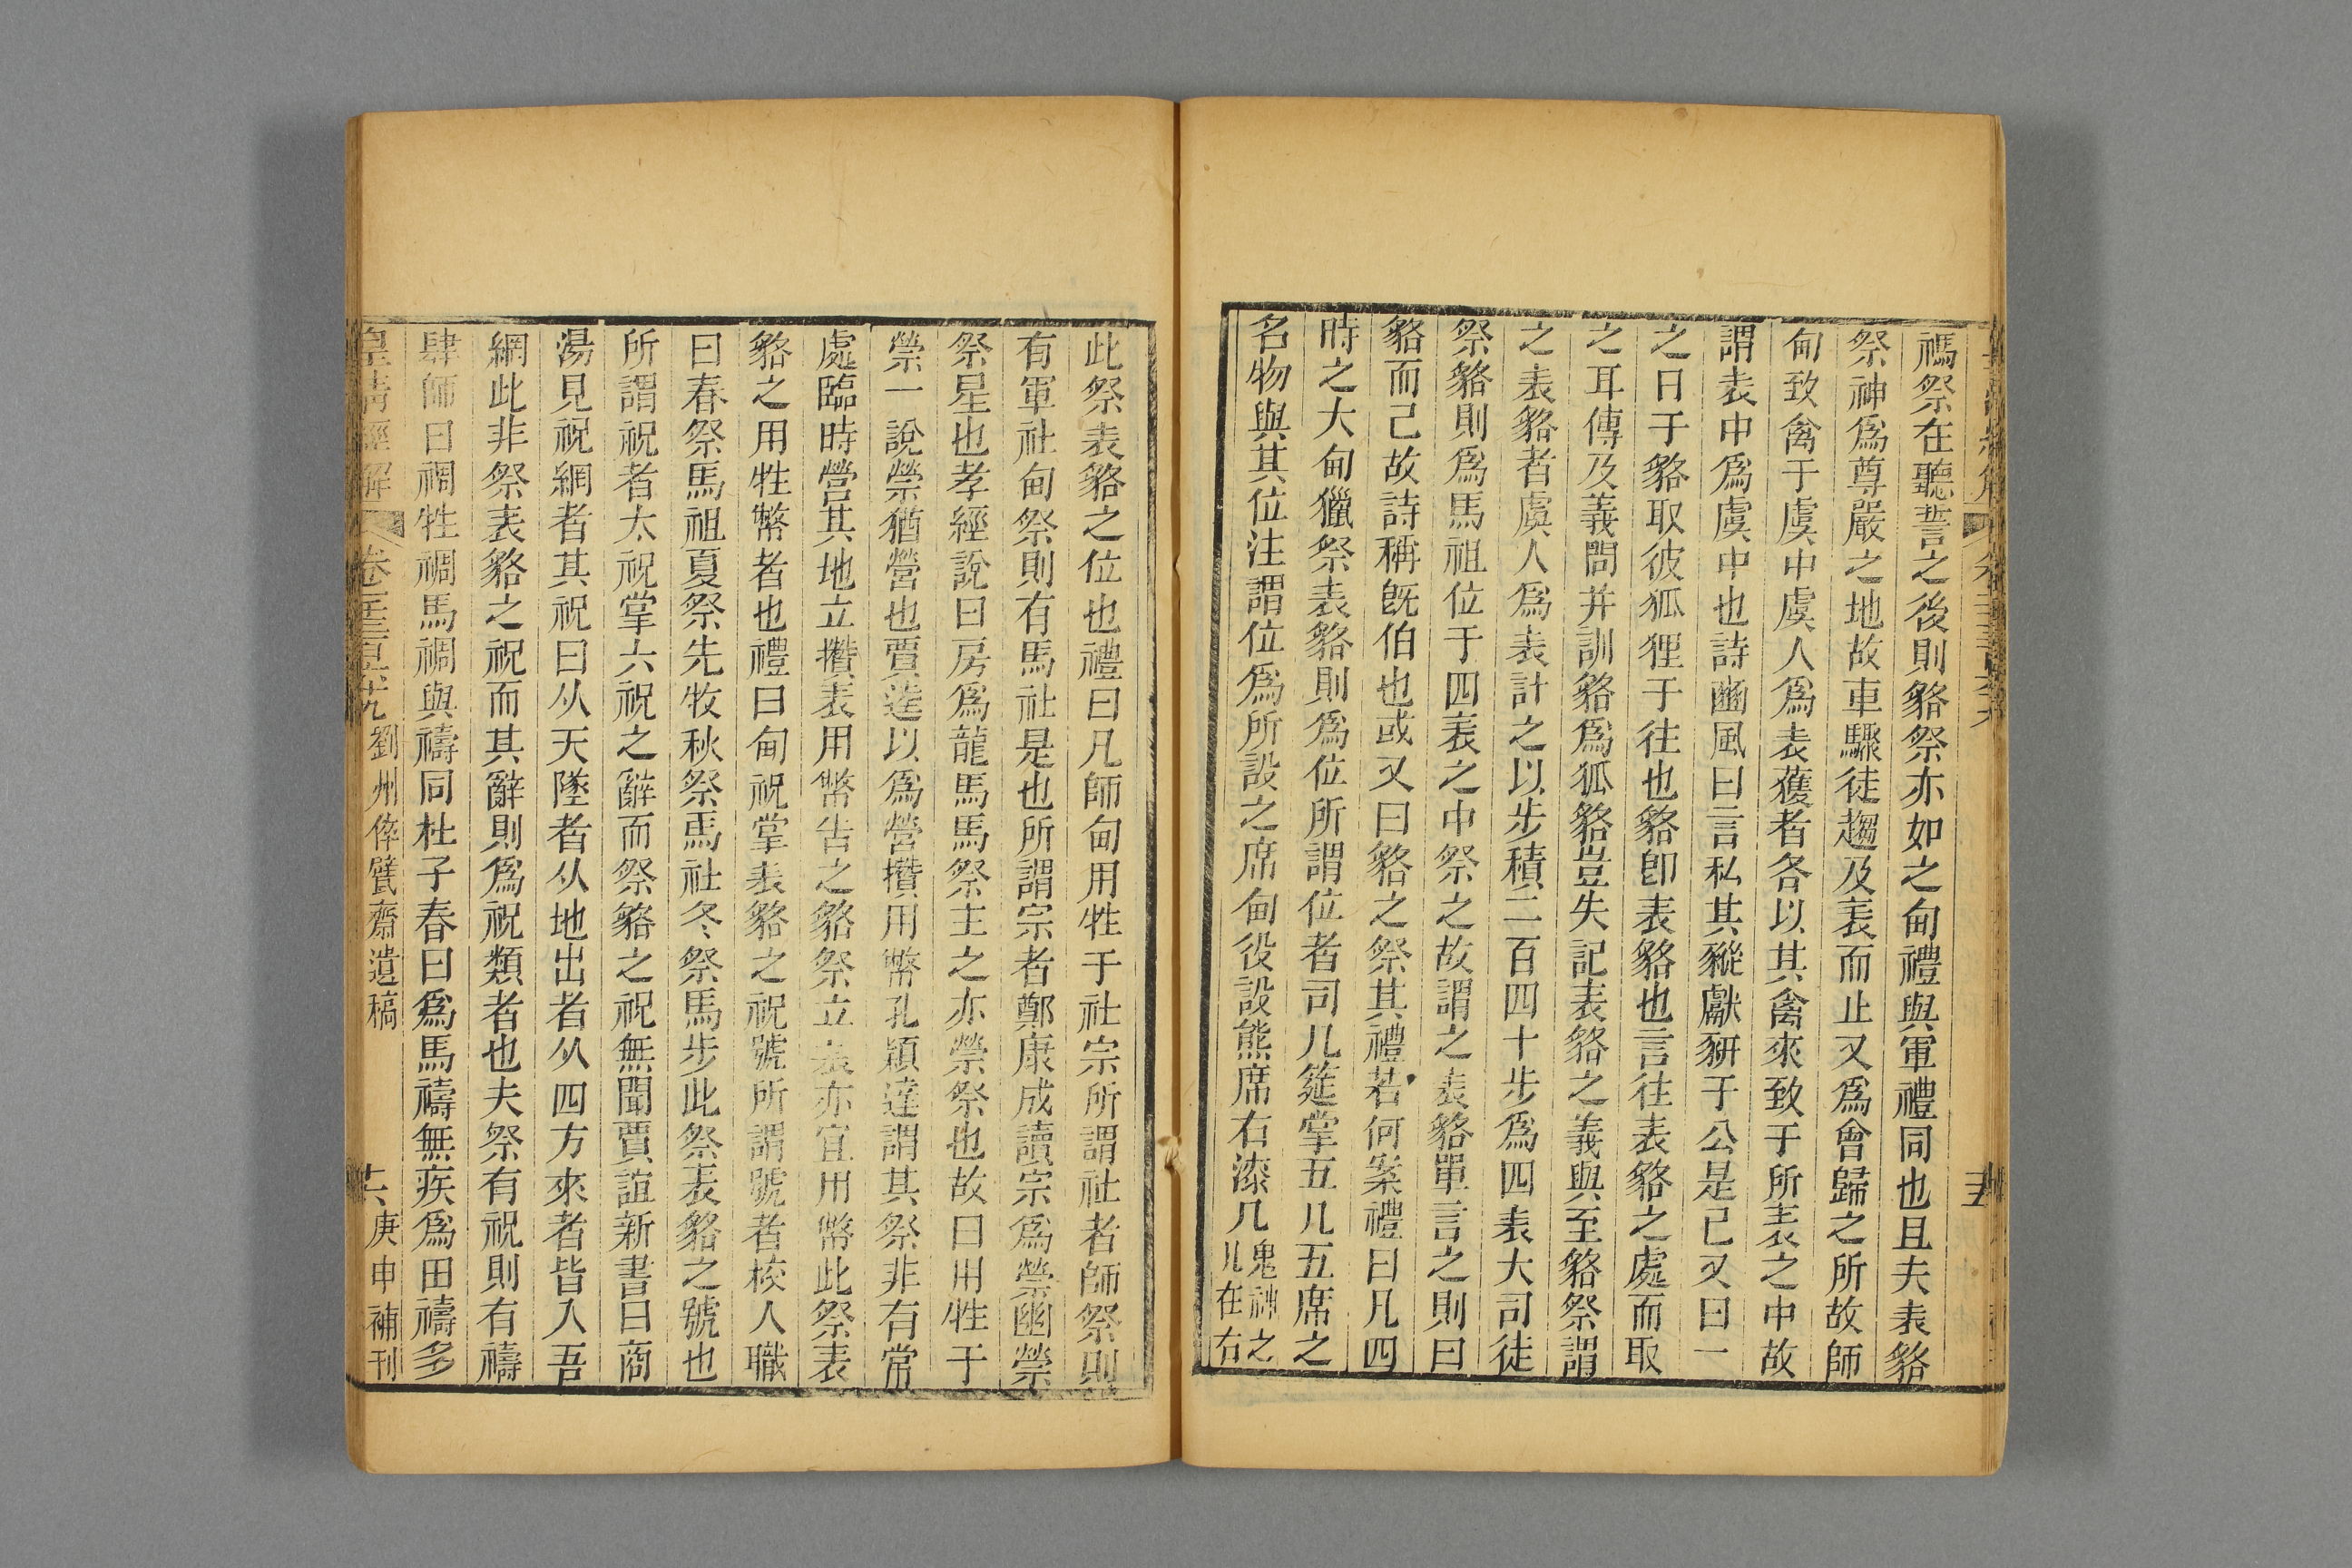 禡祭在聽誓之後則貉祭亦如之甸禮與軍禮同也且夫表貉
祭神爲尊嚴之地故車驟徒趨及表而止又爲會歸之所故師
甸致禽于虞中虞人爲表獲者各以其禽來致于所表之中故
謂表中爲虞中也詩豳風曰言私其豵獻豜于公是已又曰一
之日于貉取彼狐狸于往也貉卽表貉也言往表貉之處而取
之耳傳及義問并訓貉爲狐貉豈失記表貉之義與至貉祭謂
之表貉者虞人爲表計之以步積二百四十步爲四表大司徒
祭貉則爲馬祖位于四表之中祭之故謂之表貉單言之則曰
貉而已故詩稱旣伯也或又曰貉之祭其禮若何案禮曰凡四
時之大甸獵祭表貉則爲位所謂位者司几筵掌五几五席之
名物與其位注謂位爲所設之席甸役設熊席右漆几鬼神之几在右
此祭表貉之位也禮曰凡師甸用牲于社宗所謂社者師祭則
有軍社甸祭則有馬社是也所謂宗者鄭康成讀宗爲禜幽禜
祭星也孝經說曰房爲龍馬馬祭主之亦禜祭也故曰用牲于
禜一說禜猶營也賈逵以爲營攢用幣孔穎達謂其祭非有常
處臨時營其地立攢表用幣告之貉祭立表亦宜用幣此祭表
貉之用牲幣者也禮曰甸祝掌表貉之祝號所謂號者校人職
曰春祭馬祖夏祭先牧秋祭馬社冬祭馬步此祭表貉之號也
所謂祝者太祝掌六祝之辭而祭貉之祝無聞賈誼新書曰商
湯見祝網者其祝曰从天墜者从地出者从四方來者皆入吾
網此非祭表貉之祝而其辭則爲祝類者也夫祭有祝則有禱
肆師曰禂牲禂馬禂與禱同杜子春曰爲馬禱無疾爲田禱多
皇清經解 劉州倅甓齋遺稿 庚申補刊